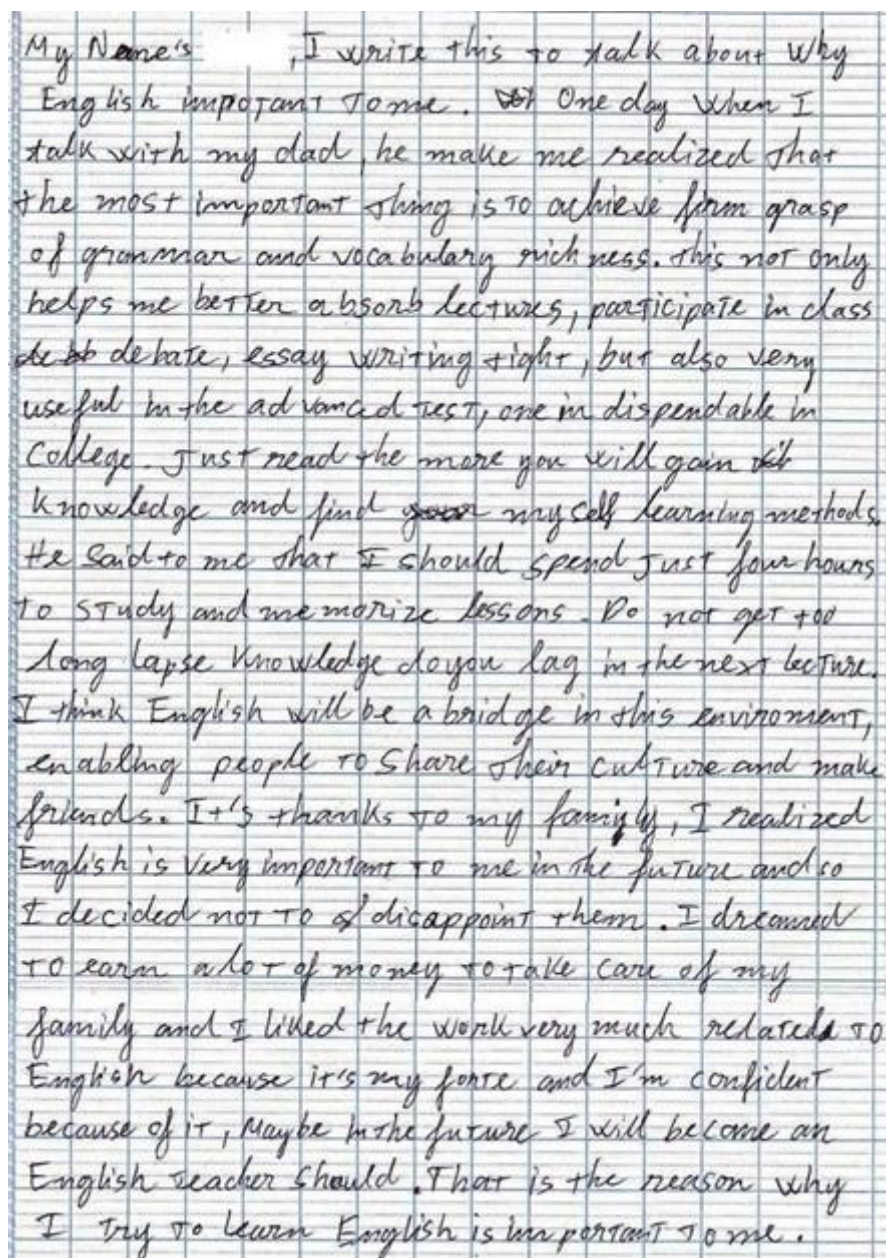 My Name's , I write this to talk about Why
English impotant to me. One day when I
talk with my dad, he make me realized that
the most important thing is to achieve firm grasp
of grammar and vocabulary rich ness. this not only
helps me better absorb lectures, participate in class
debate, essay writing tight, but also very
useful in the advanced test, one in dispendable in
College. Just read the more you will gain
knowledge and find myself learning methods.
He said to me that I should spend just four hours
to study and memorize lessons. Do not get too
long lapse knowledge do you lag in the next lecture.
I think English will be a bridge in this enviroment,
enabling people to share their culture and make
friends. It's thanks to my family, I realized
English is very important to me in the future and so
I decided not to disappoint them. I dreamed
to earn a lot of money to take care of my
family and I liked the work very much related to
English because it's my forte and I'm confident
because of it, Maybe in the future I will become an
English teacher should. That is the reason why
I try to learn English is important to me.